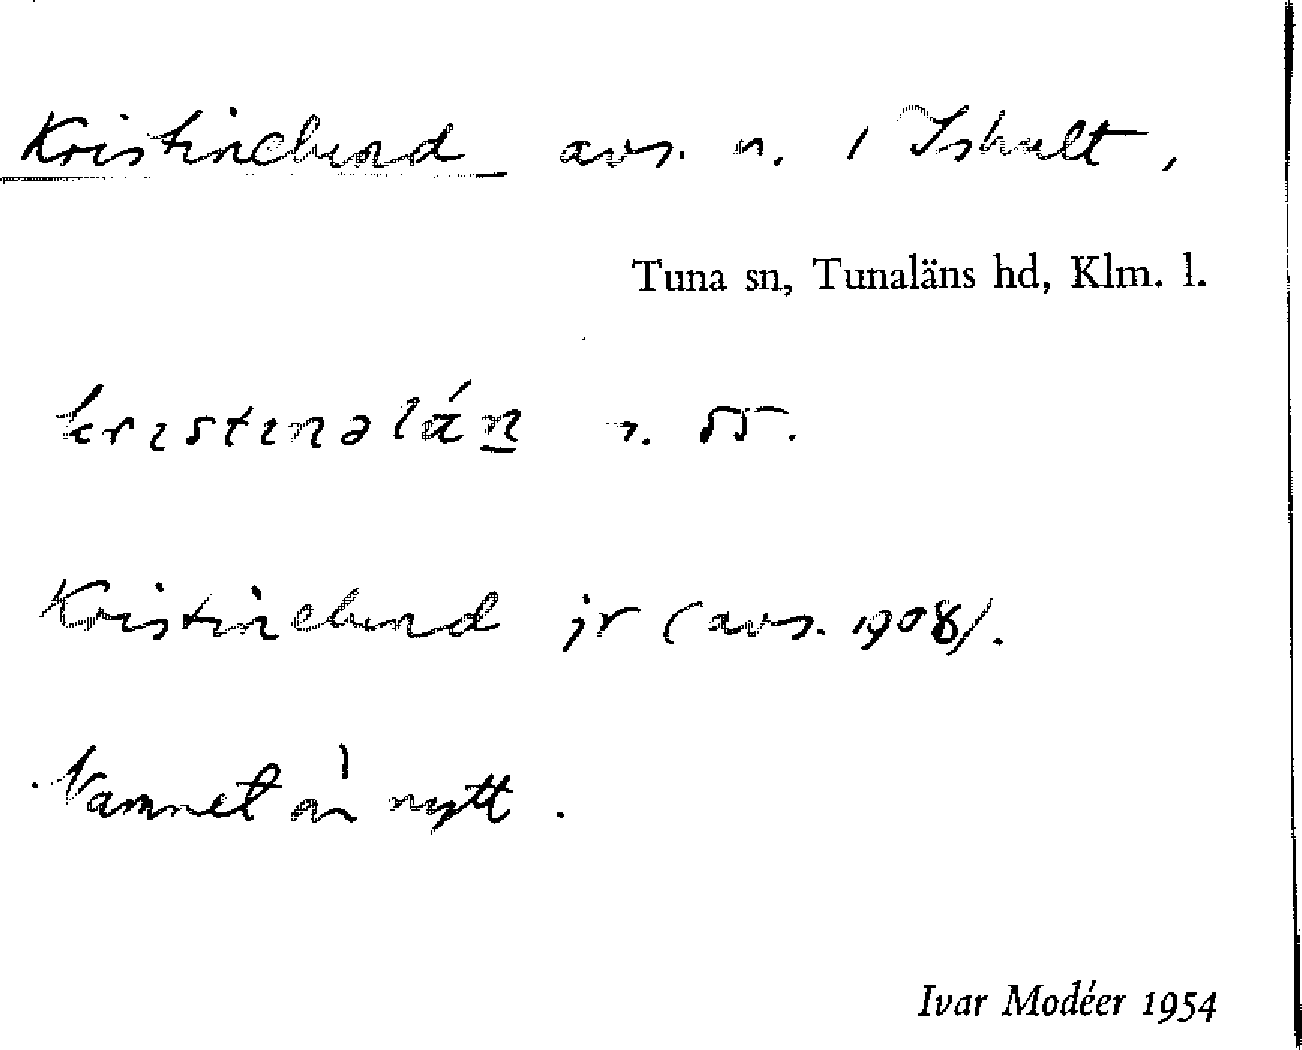 Kristinelund avs. n. i Ishult,
Tuna sn, Tunaläns hd, Klm. l.
krɪstɪnəlán̲ n. 55.
Kristinelund jr (avs. 1908).
Namnet är nytt.
Ivar Modéer 1954